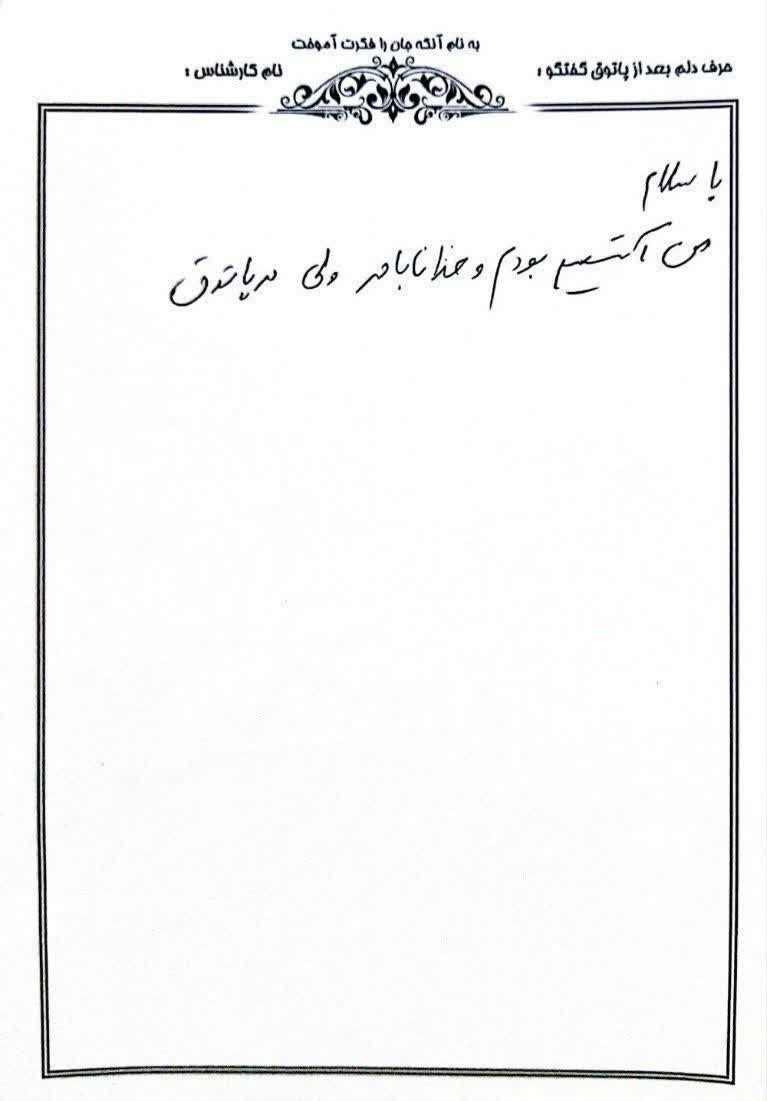 به نام آنکه جان را فکرت آموخت
حرف دلم بعد از پاتوق گفتگو :
نام کارشناس :
با سلام
من آتئیسم بودم و خدا ناباور ولی در پاتوق